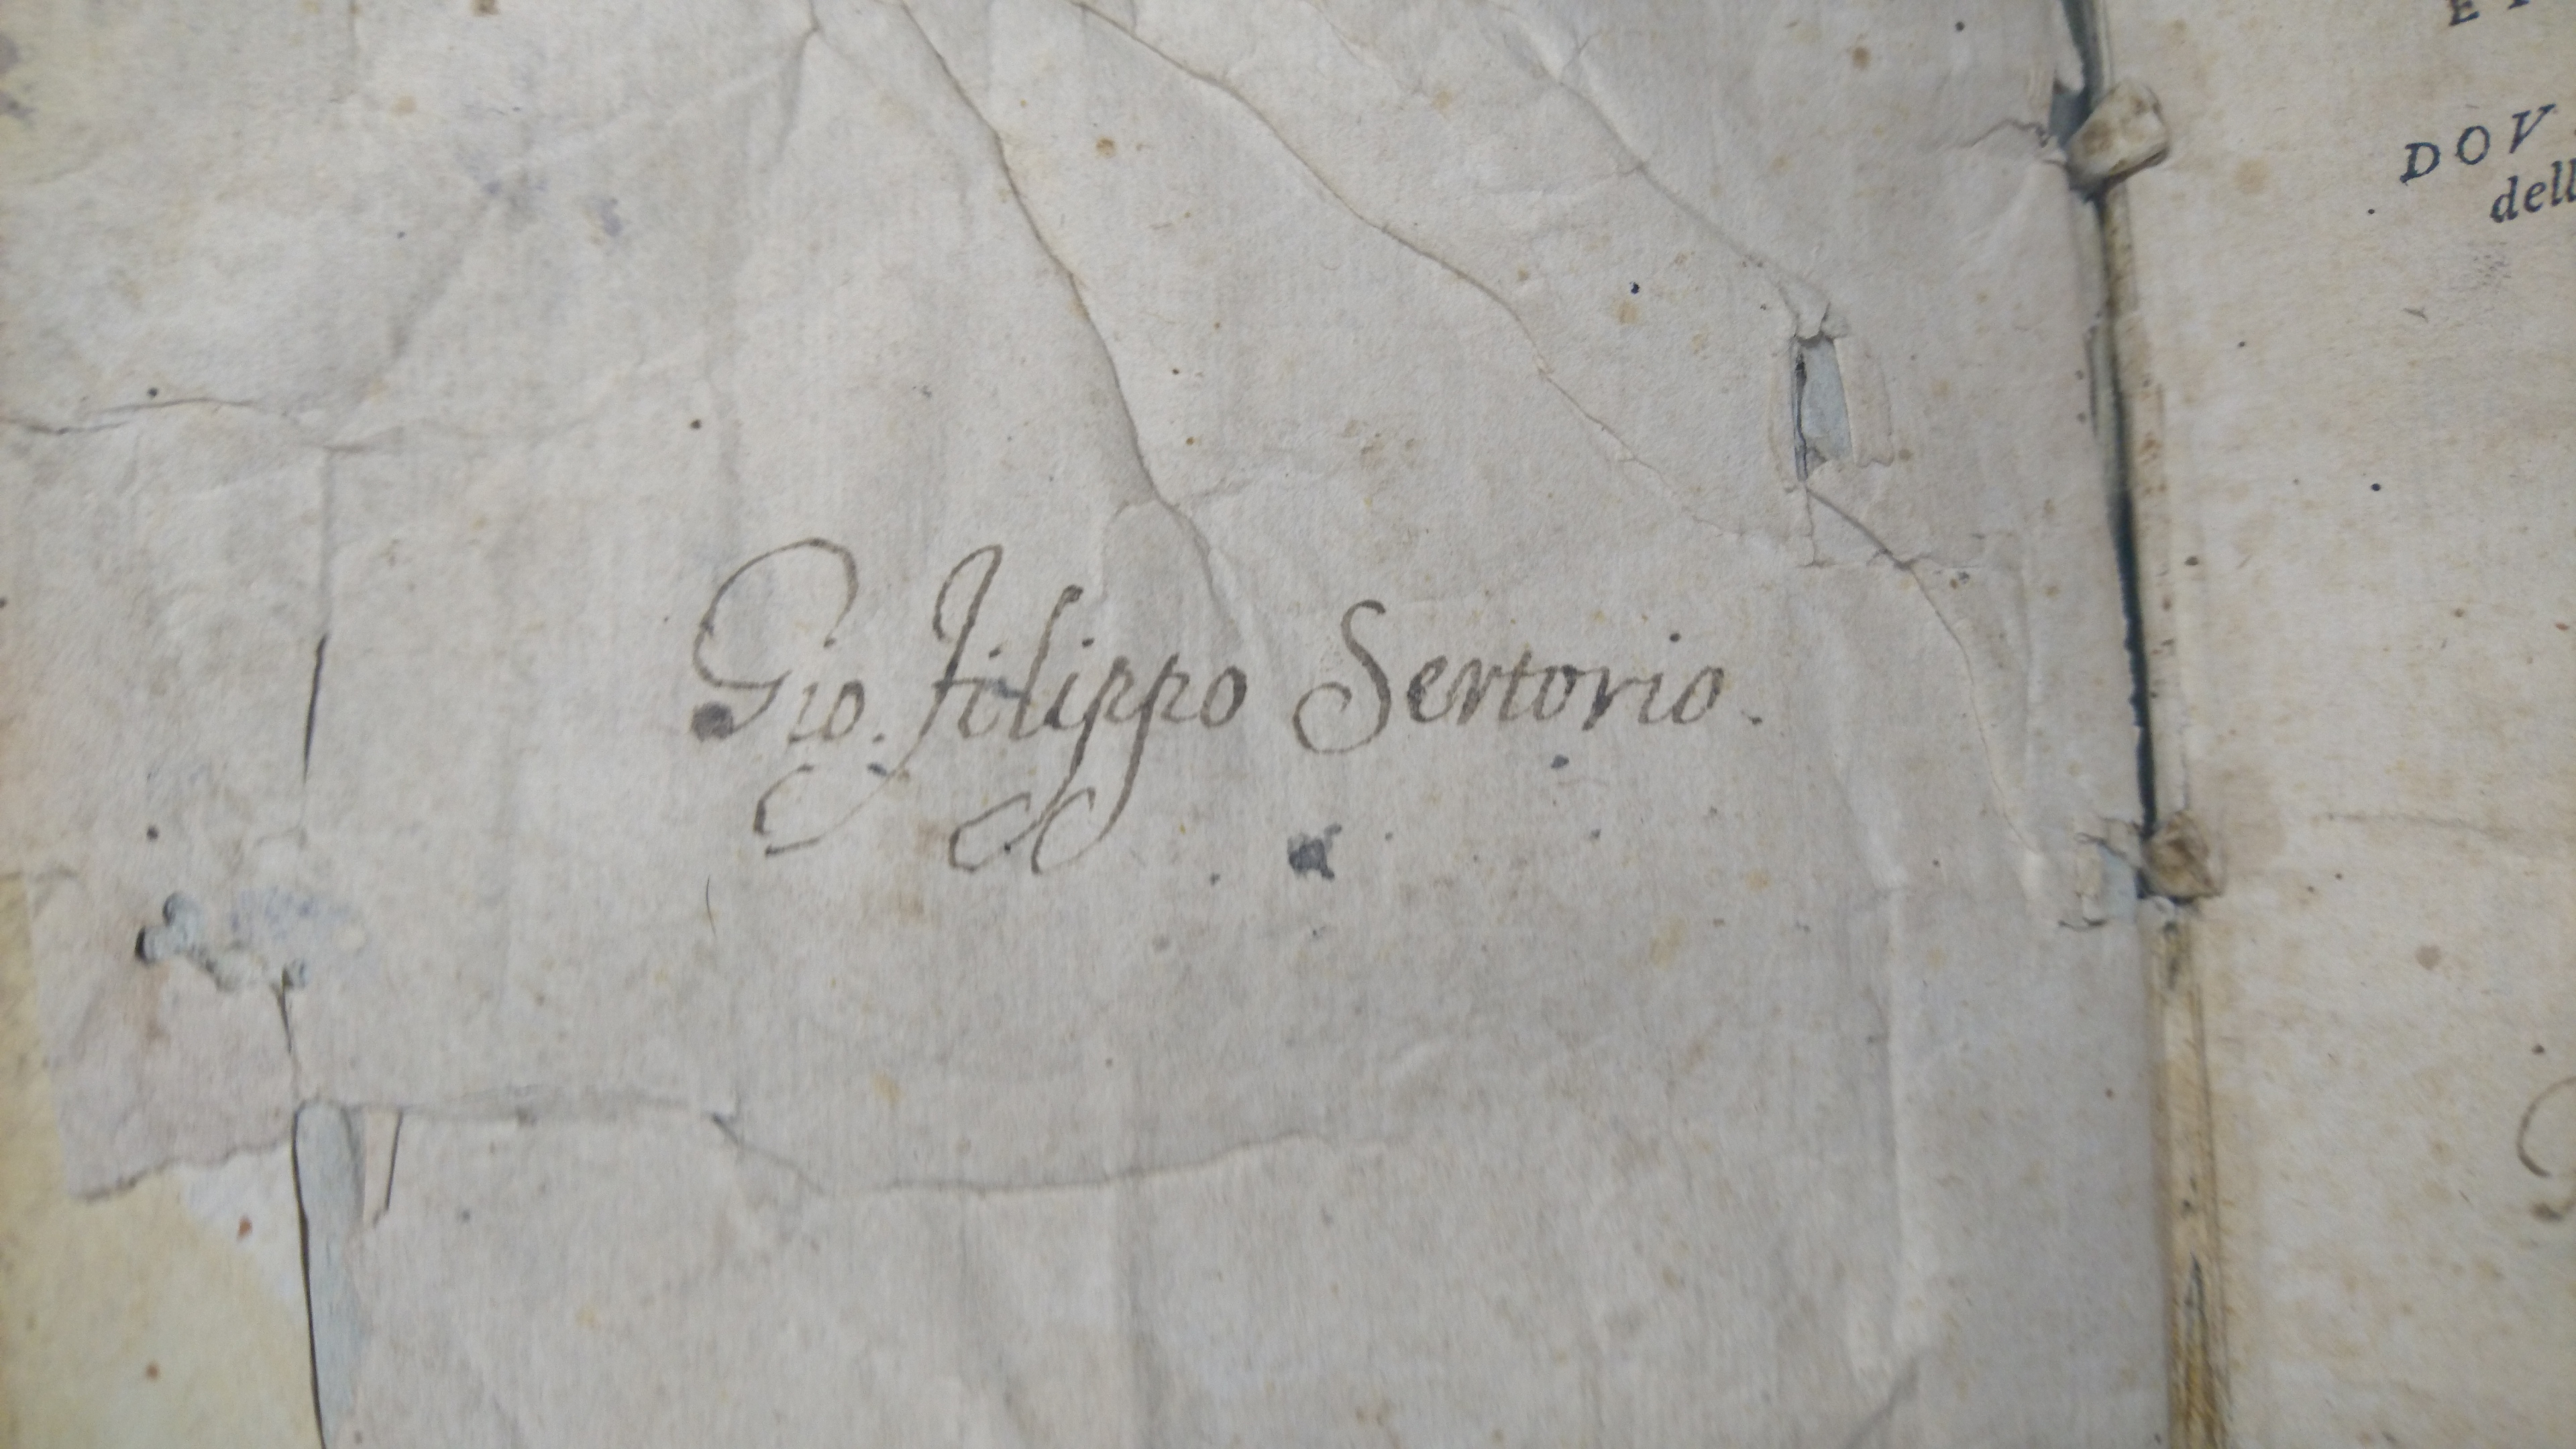 Gio. Filippo Sertorio.
DOV
dell